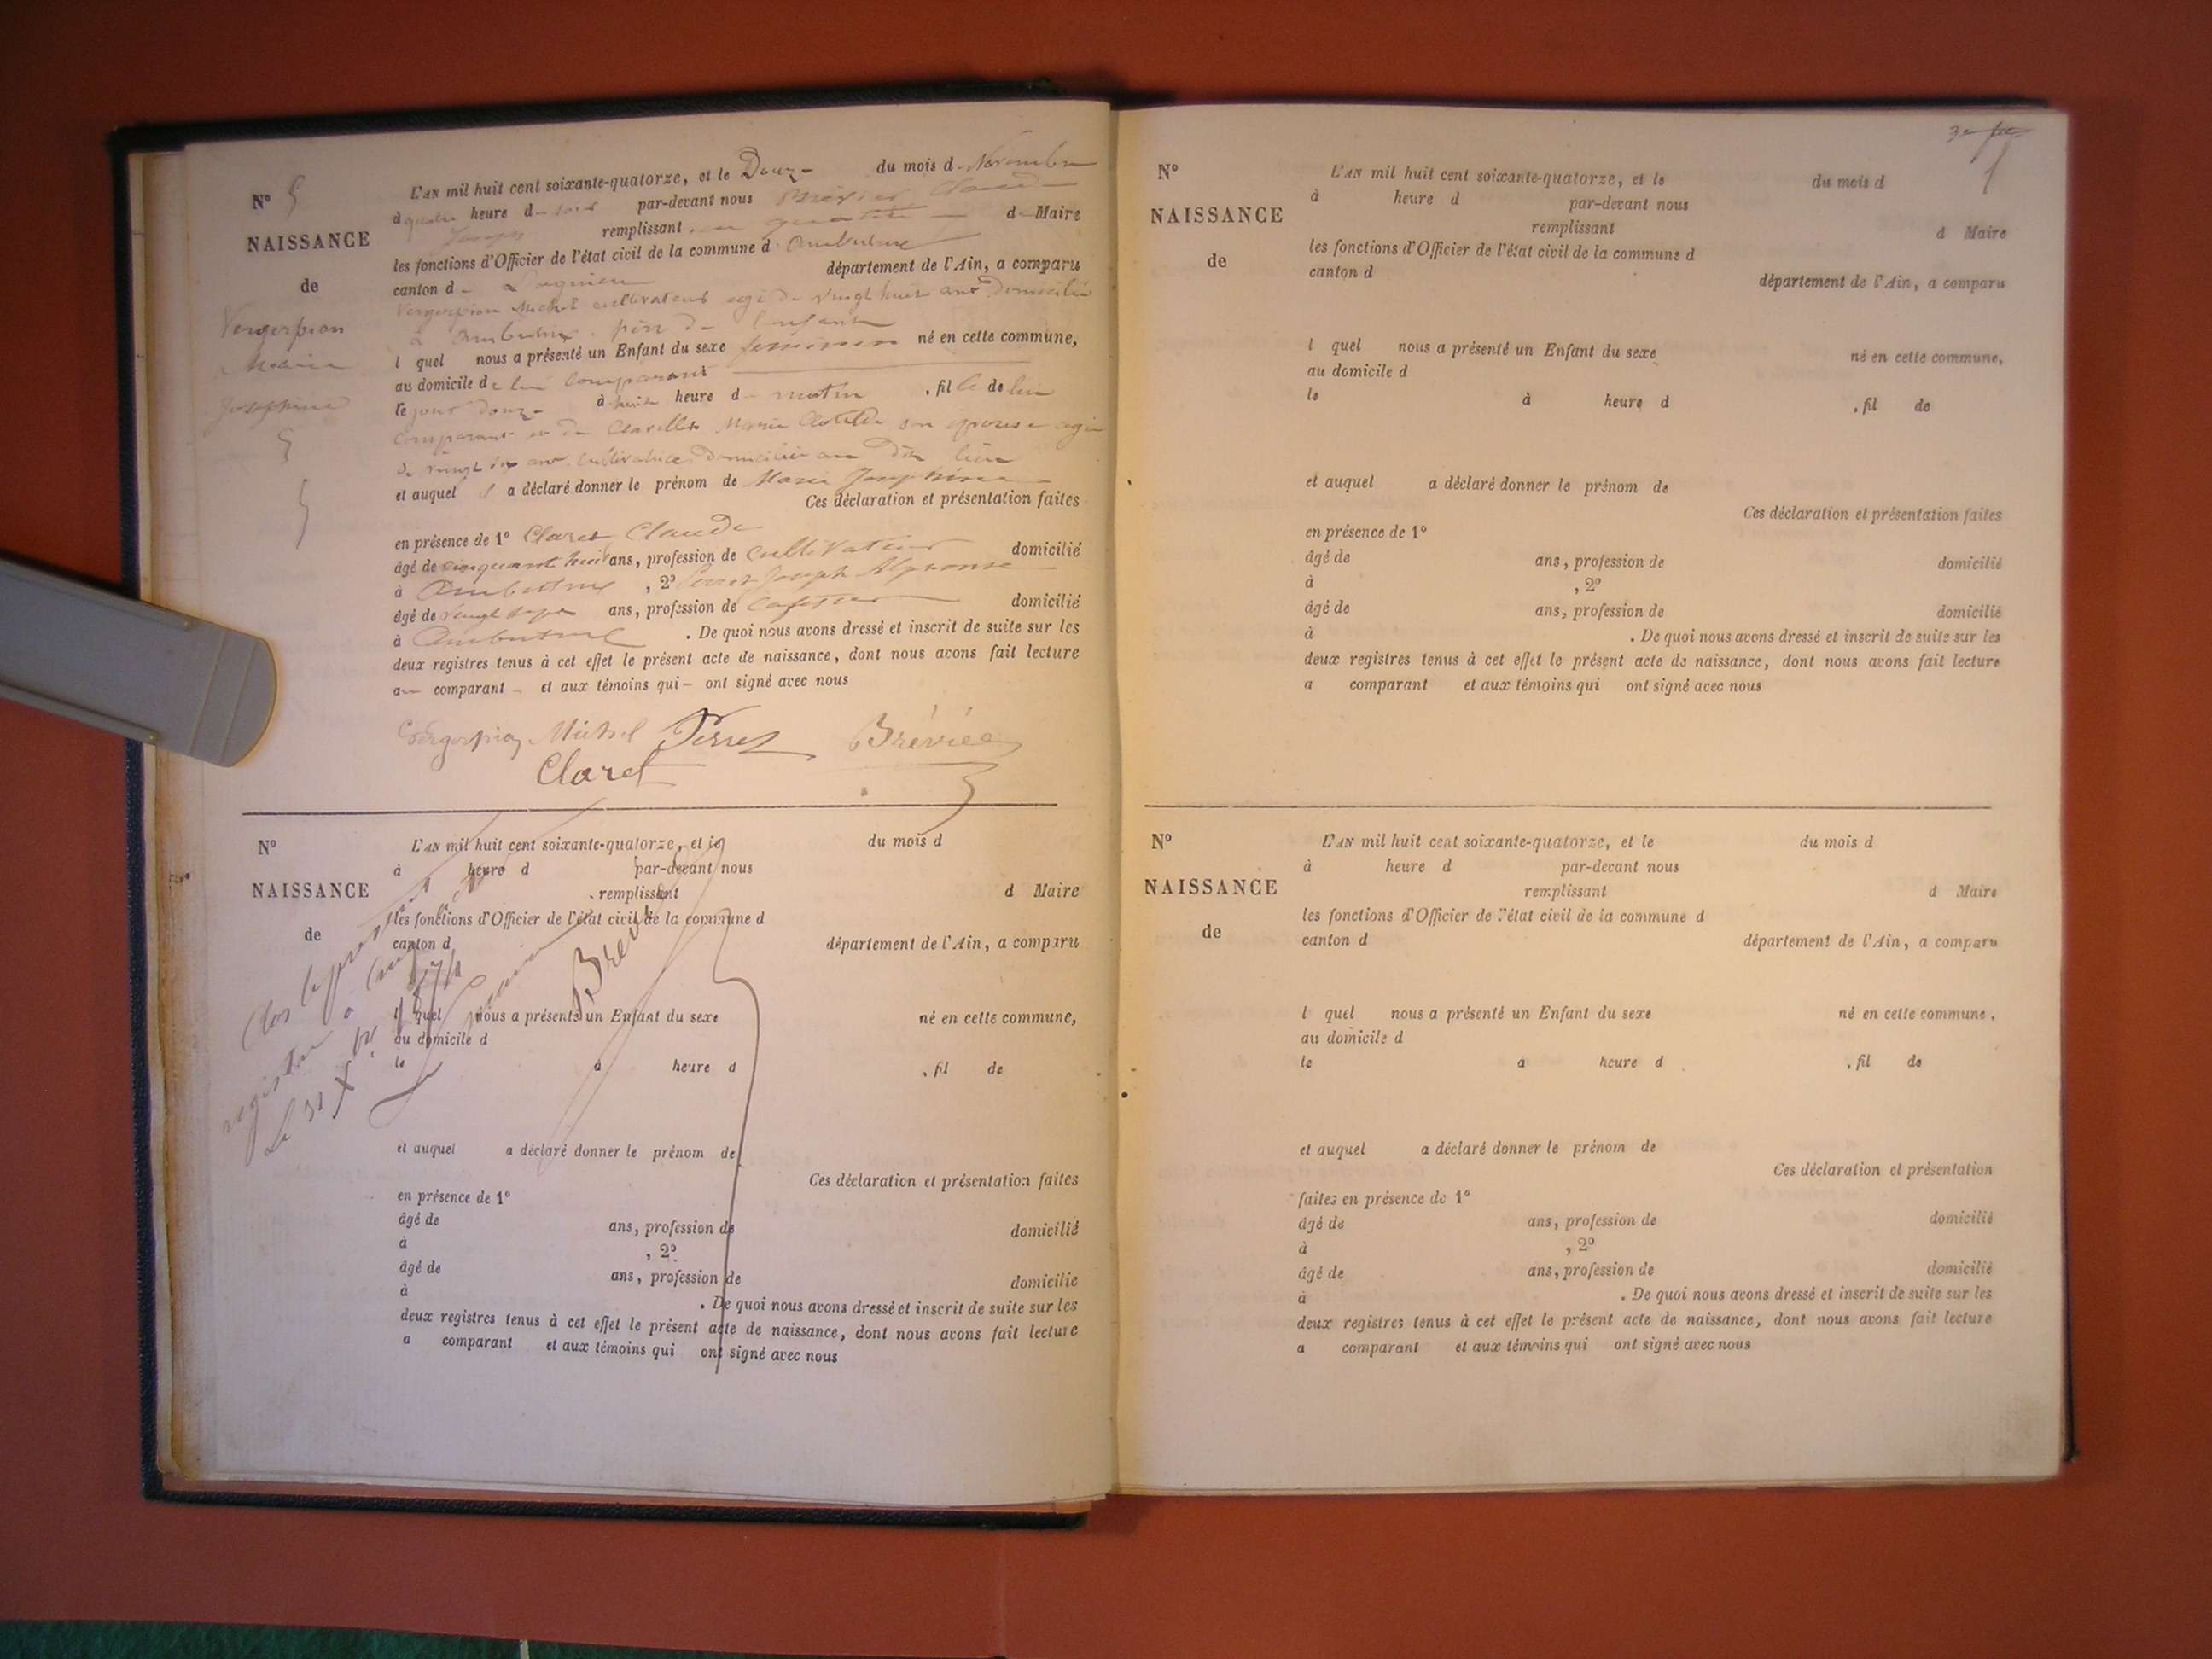 N° 5
NAISSANCE
de
Vergerpion
Marie
Josephine
L'AN mil huit cent soixante-quatorze, et le Douze du mois de Novembre
à quatre heure du soir par-devant nous Brévier Claude
Joseph remplissant en qualité de Maire
les fonctions d'Officier de l'état civil de la commune d'Ambutrix
canton de Lagnieu département de l'Ain, a comparu
Vergerpion Michel cultivateur agé de vingt huit ans domicilié
à Ambutrix père de l'enfant
l quel nous a présenté un Enfant du sexe féminin né en cette commune,
au domicile de lui comparant
ce jour douze à huit heure du matin , fil le de lui
comparant et de Claret Marie Clotilde son épouse agée
de vingt six ans cultivatrice domiciliée au dit lieu
et auquel il a déclaré donner le prénom de Marie Josephine
Ces déclaration et présentation faites
en présence de 1° Claret Claude
âgé de cinquante huit ans, profession de cultivateur domicilié
à Ambutrix , 2° Perret Joseph Alphonse
âgé de vingt sept ans, profession de cafetier domicilié
à Ambutrix . De quoi nous avons dressé et inscrit de suite sur les
deux registres tenus à cet effet le présent acte de naissance, dont nous avons fait lecture
au comparant et aux témoins qui ont signé avec nous
Vergerpion Michel Perret Brévier
Claret
N°
NAISSANCE
de
L'AN mil huit cent soixante-quatorze, et le du mois d
à heure d par-devant nous
remplissant d Maire
les fonctions d'Officier de l'état civil de la commune d
canton d département de l'Ain, a comparu
l quel nous a présenté un Enfant du sexe né en cette commune,
au domicile d
le à heure d , fil de
et auquel a déclaré donner le prénom de
Ces déclaration et présentation faites
en présence de 1°
âgé de ans, profession de domicilié
à , 2°
âgé de ans, profession de domicilié
à . De quoi nous avons dressé et inscrit de suite sur les
deux registres tenus à cet effet le présent acte de naissance, dont nous avons fait lecture
a comparant et aux témoins qui ont signé avec nous
Clos le présent
registre à
Le 31 Xbre 1874
N°
NAISSANCE
de
L'AN mil huit cent soixante-quatorze, et le du mois d
à heure d par-devant nous
remplissant d Maire
les fonctions d'Officier de l'état civil de la commune d
canton d département de l'Ain, a comparu
l quel nous a présenté un Enfant du sexe né en cette commune,
au domicile d
le à heure d , fil de
et auquel a déclaré donner le prénom de
Ces déclaration et présentation faites
en présence de 1°
âgé de ans, profession de domicilié
à , 2°
âgé de ans, profession de domicilié
à . De quoi nous avons dressé et inscrit de suite sur les
deux registres tenus à cet effet le présent acte de naissance, dont nous avons fait lecture
a comparant et aux témoins qui ont signé avec nous
N°
NAISSANCE
de
L'AN mil huit cent soixante-quatorze, et le du mois d
à heure d par-devant nous
remplissant d Maire
les fonctions d'Officier de l'état civil de la commune d
canton d département de l'Ain, a comparu
l quel nous a présenté un Enfant du sexe né en cette commune,
au domicile d
le à heure d , fil de
et auquel a déclaré donner le prénom de
Ces déclaration et présentation
faites en présence de 1°
âgé de ans, profession de domicilié
à , 2°
âgé de ans, profession de domicilié
à . De quoi nous avons dressé et inscrit de suite sur les
deux registres tenus à cet effet le présent acte de naissance, dont nous avons fait lecture
a comparant et aux témoins qui ont signé avec nous